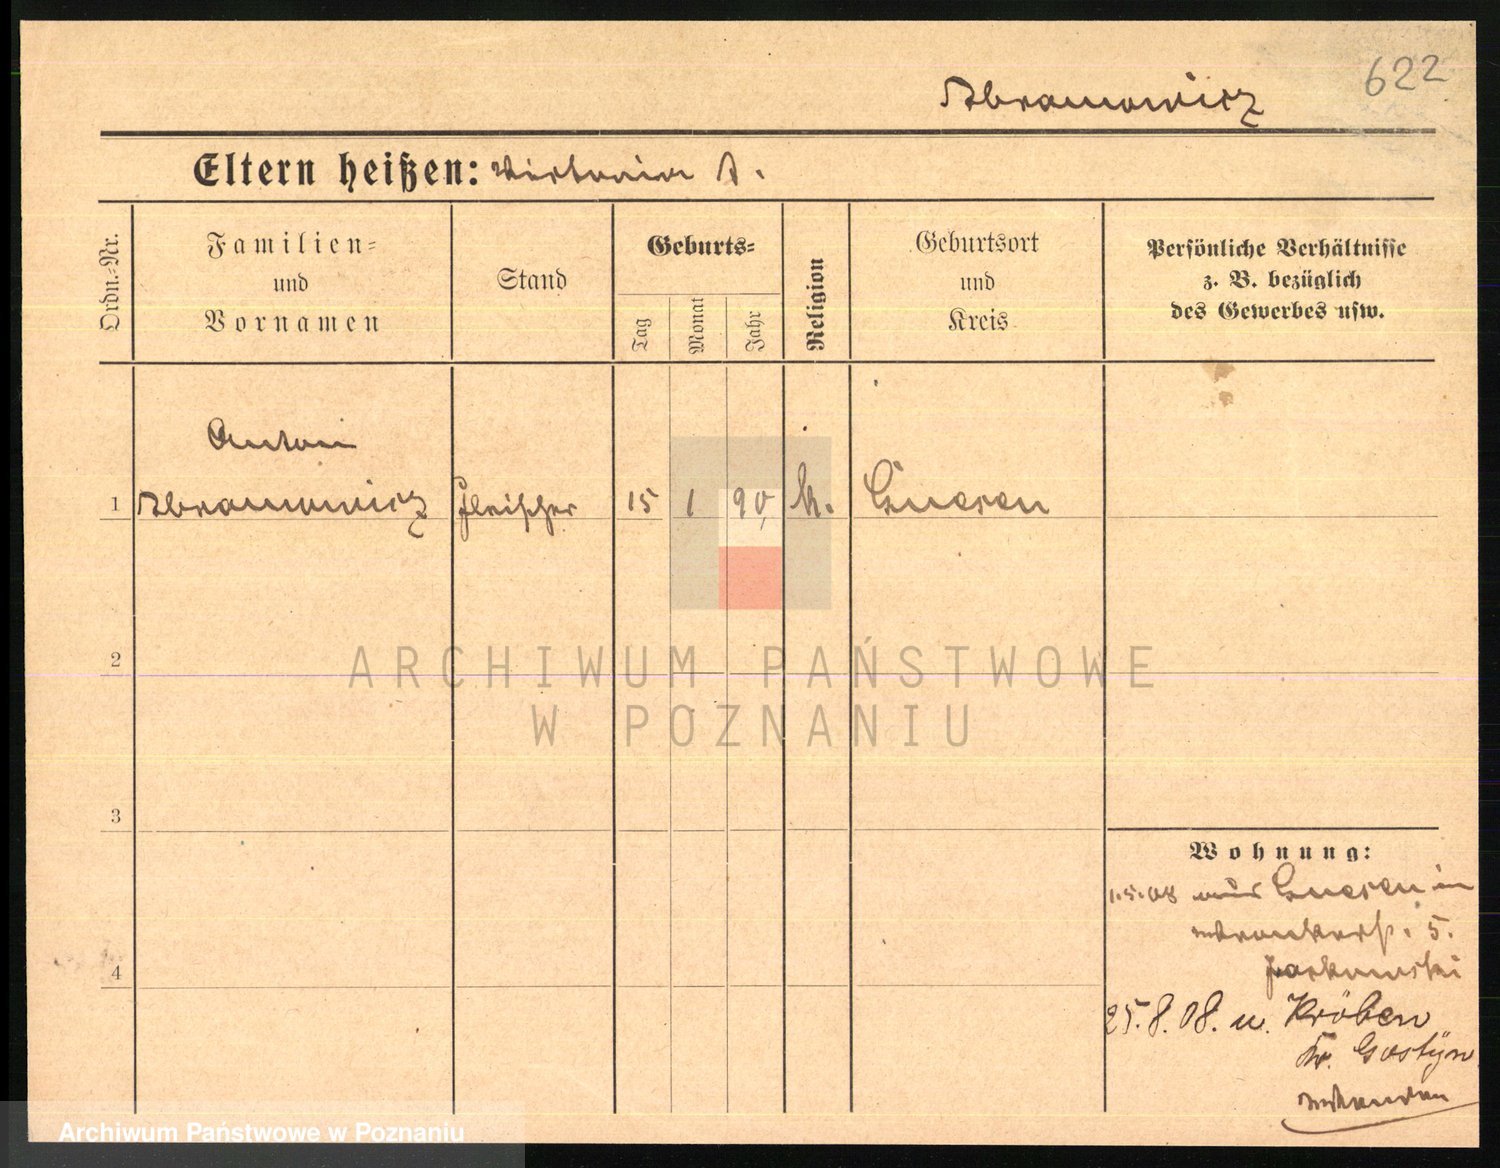 622
Abramowicz
Eltern heißen: Viktoria A.
Ordn.-Nr.
Familien-
und
Vornamen
Stand
Geburts-
Tag
Monat
Jahr
Religion
Geburtsort
und
Kreis
Persönliche Verhältnisse
z. B. bezüglich
des Gewerbes usw.
Anton
1 Abramowicz Fleischer 15 1 90, k. Gnesen
2
ARCHIWUM PAŃSTWOWE
W POZNANIU
3
Wohnung:
1.5.08 aus Gnesen in
5.
4
25.8.08. n. Kröben
Kr. Gostyn
Archiwum Państwowe w Poznaniu